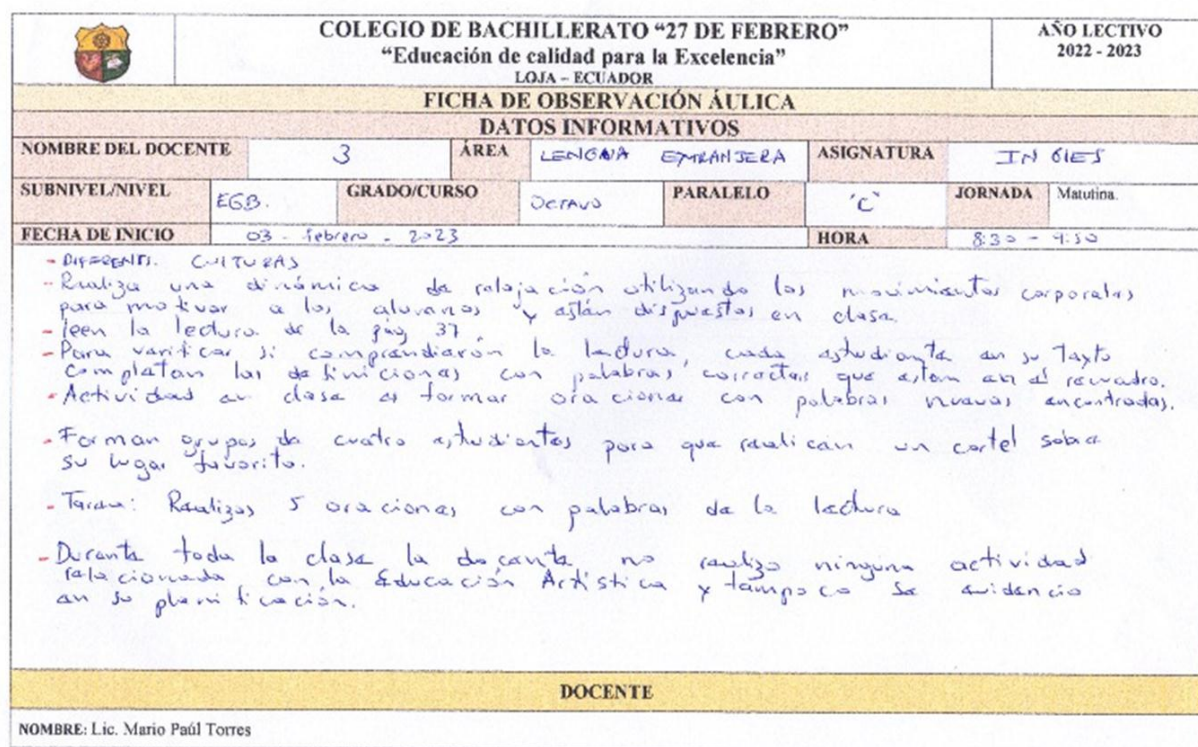 COLEGIO DE BACHILLERATO “27 DE FEBRERO”
“Educación de calidad para la Excelencia”
LOJA – ECUADOR
AÑO LECTIVO
2022 - 2023
FICHA DE OBSERVACIÓN ÁULICA
DATOS INFORMATIVOS
NOMBRE DEL DOCENTE 3 ÁREA LENGUA EXTRANJERA ASIGNATURA INGlES
SUBNIVEL/NIVEL EGB. GRADO/CURSO OCTAVO PARALELO "C" JORNADA Matutina.
FECHA DE INICIO 03 - febrero - 2023 HORA 8:30 - 9:50
- DIFERENTS. CULTURAS
- Realiza una dinámica de relajación utilizando los movimientos corporales
para motivar a los alumnos y están dispuestos en clase.
- leen la lectura de la pág 37.
- Para verificar si comprendieron la lectura, cada estudiante en su texto
completan las definiciones con palabras correctas que estan en el recuadro.
- Actividad en clase es formar oraciones con palabras nuevas encontradas.
- Forman grupos de cuatro estudiantes para que realicen un cartel sobre
su lugar favorito.
- Tarea: Realizas 5 oraciones con palabras de la lectura
- Durante toda la clase la docente no realizo ninguna actividad
relacionada con la Educación Artística y tampoco se evidencio
en su planificación.
DOCENTE
NOMBRE: Lic. Mario Paúl Torres